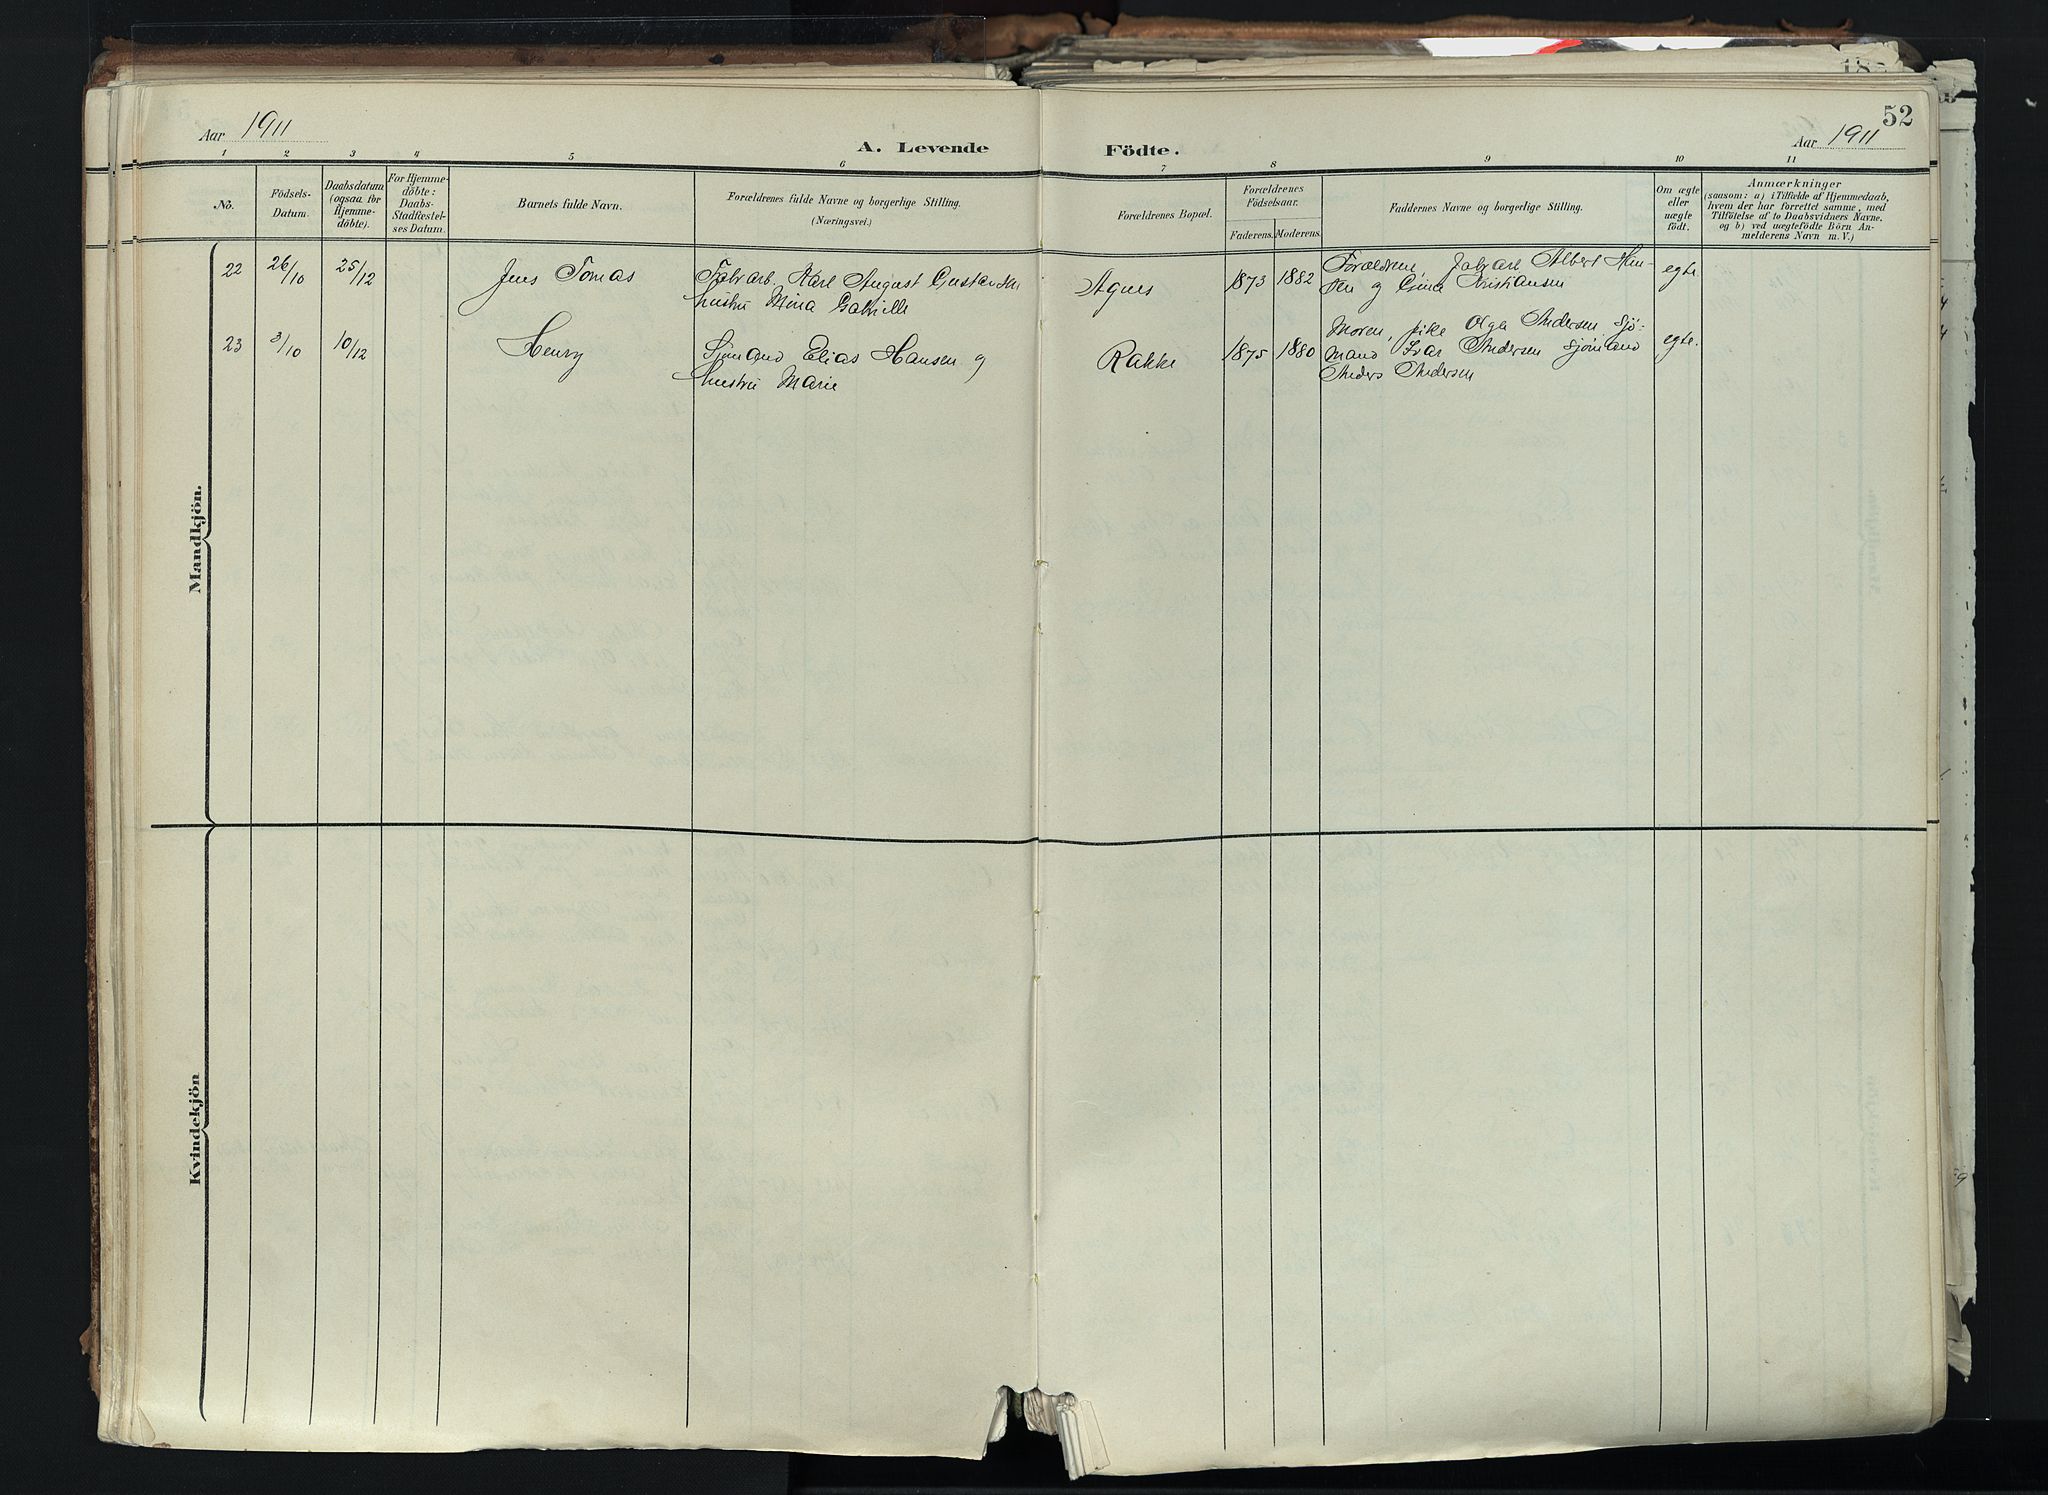 Aar 1911
A. Levende
Födte.
Aar 1911
52
1 2 3 4 5 6 7 8 9 10 11
No.
Födsels-
Datum.
Daabsdatum
(ogsaa for
Hjemme-
döbte).
For Hjemme-
döbte:
Daabs-
Stadfæstel-
ses Datum.
Barnets fulde Navn.
Forældrenes fulde Navne og borgerlige Stilling.
(Næringsvei.)
Forældrenes Bopæl.
Forældrenes
Födselsaar.
Faderens. Moderens.
Faddernes Navne og borgerlige Stilling.
Om ægte
eller
uægte
födt.
Anmærkninger
(saasom: a) i Tilfælde af Hjemmedaab,
hvem der har forrettet samme, med
Tilföielse af to Daabsvidners Navne.
og b) ved uægtefödte Börn An-
melderens Navn m. V.)
Mandkjön.
22
26/10
25/12
Jens Tomas
Fabrarb. Karl August Gustavsen
hustru Mina Gabrielle
Agnes
1873
1882
Forældrene, Fabrarb Albert Han-
sen og Gina Kristiansen
egte.
23
3/10
10/12
Henry
Sjömand Elias Hansen og
hustru Marie
Rakke
1875
1880
Moren, pike Olga Andersen, sjö-
mand Ivar Andersen sjömand
Anders Andersen
egte.
Kvindekjön